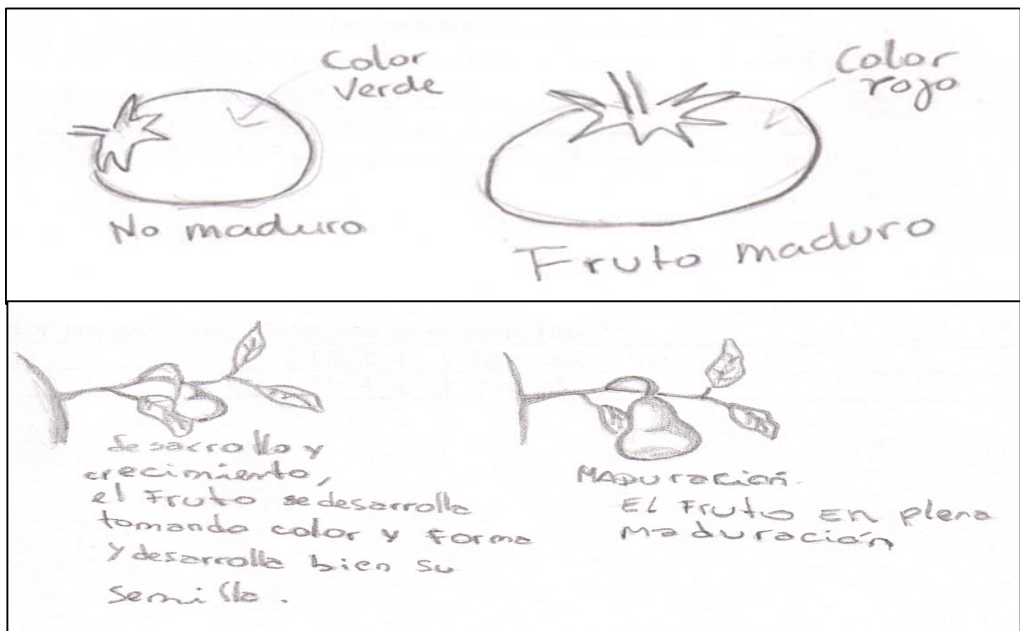 Color
Verde
No maduro
Color
rojo
Fruto maduro
desarrollo y
crecimiento,
el Fruto se desarrolla
tomando color y forma
y desarrolla bien su
semilla.
MADUración.
EL Fruto EN plena
maduración